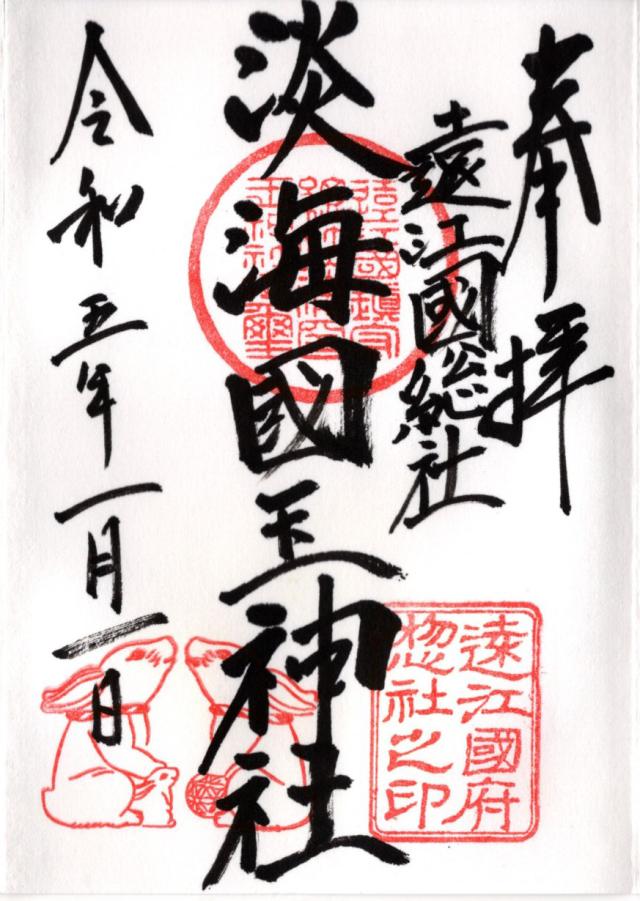 奉拝
遠江國総社
淡海國玉神社
令和五年一月一日
遠江國府
惣社之印